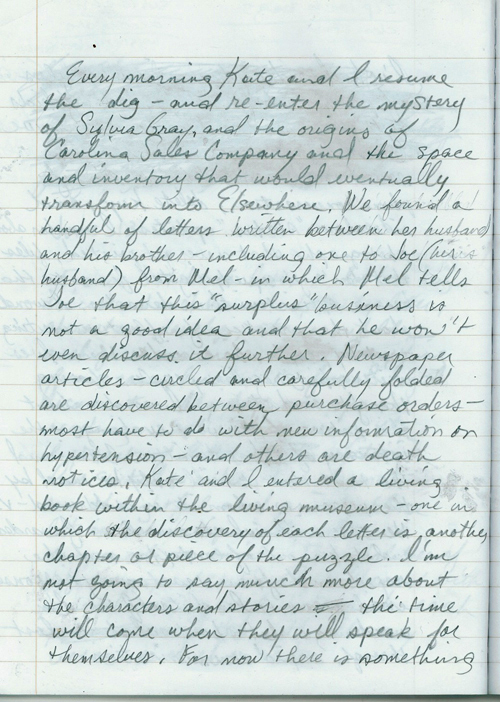 Every morning Kate and I resume
the dig - and re-enter the mystery
of Sylvia Gray, and the origins of
Carolina Sales Company and the space
and inventory that would eventually
transform into Elsewhere. We found a
handful of letters written between her husband
and his brother - including one to Joe (her
husband) from Mel - in which Mel tells
Joe that this "surplus" business is
not a good idea and that he won't
even discuss it further. Newspaper
articles - circled and carefully folded
are discovered between purchase orders -
most have to do with new information on
hypertension - and others are death
notices. Kate and I entered a living
book within the living museum - one in
which the discovery of each letter is another
chapter or piece of the puzzle. I'm
not going to say much more about
the characters and stories - the time
will come when they will speak for
themselves. For now there is something